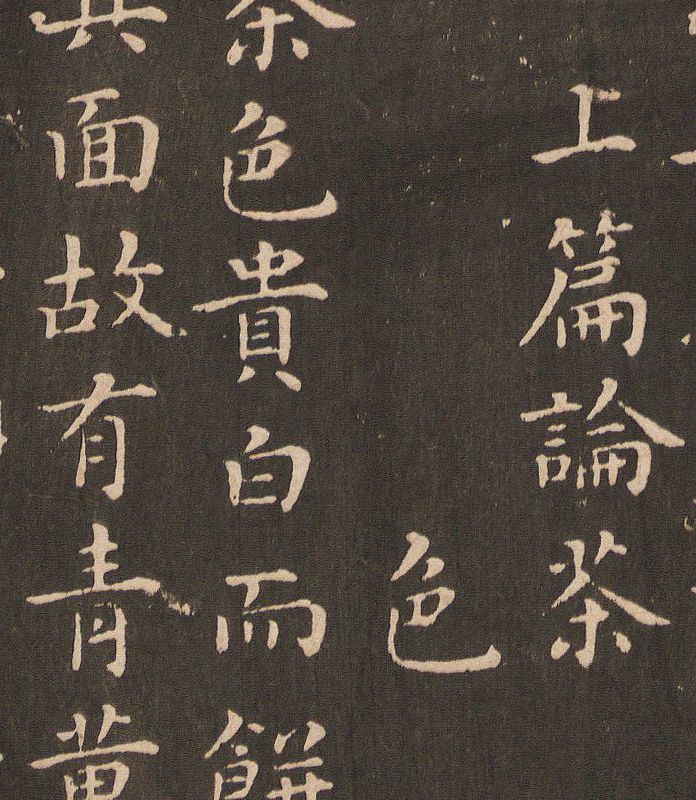 上篇論茶
色
茶色貴白而餅
其面故有青黄